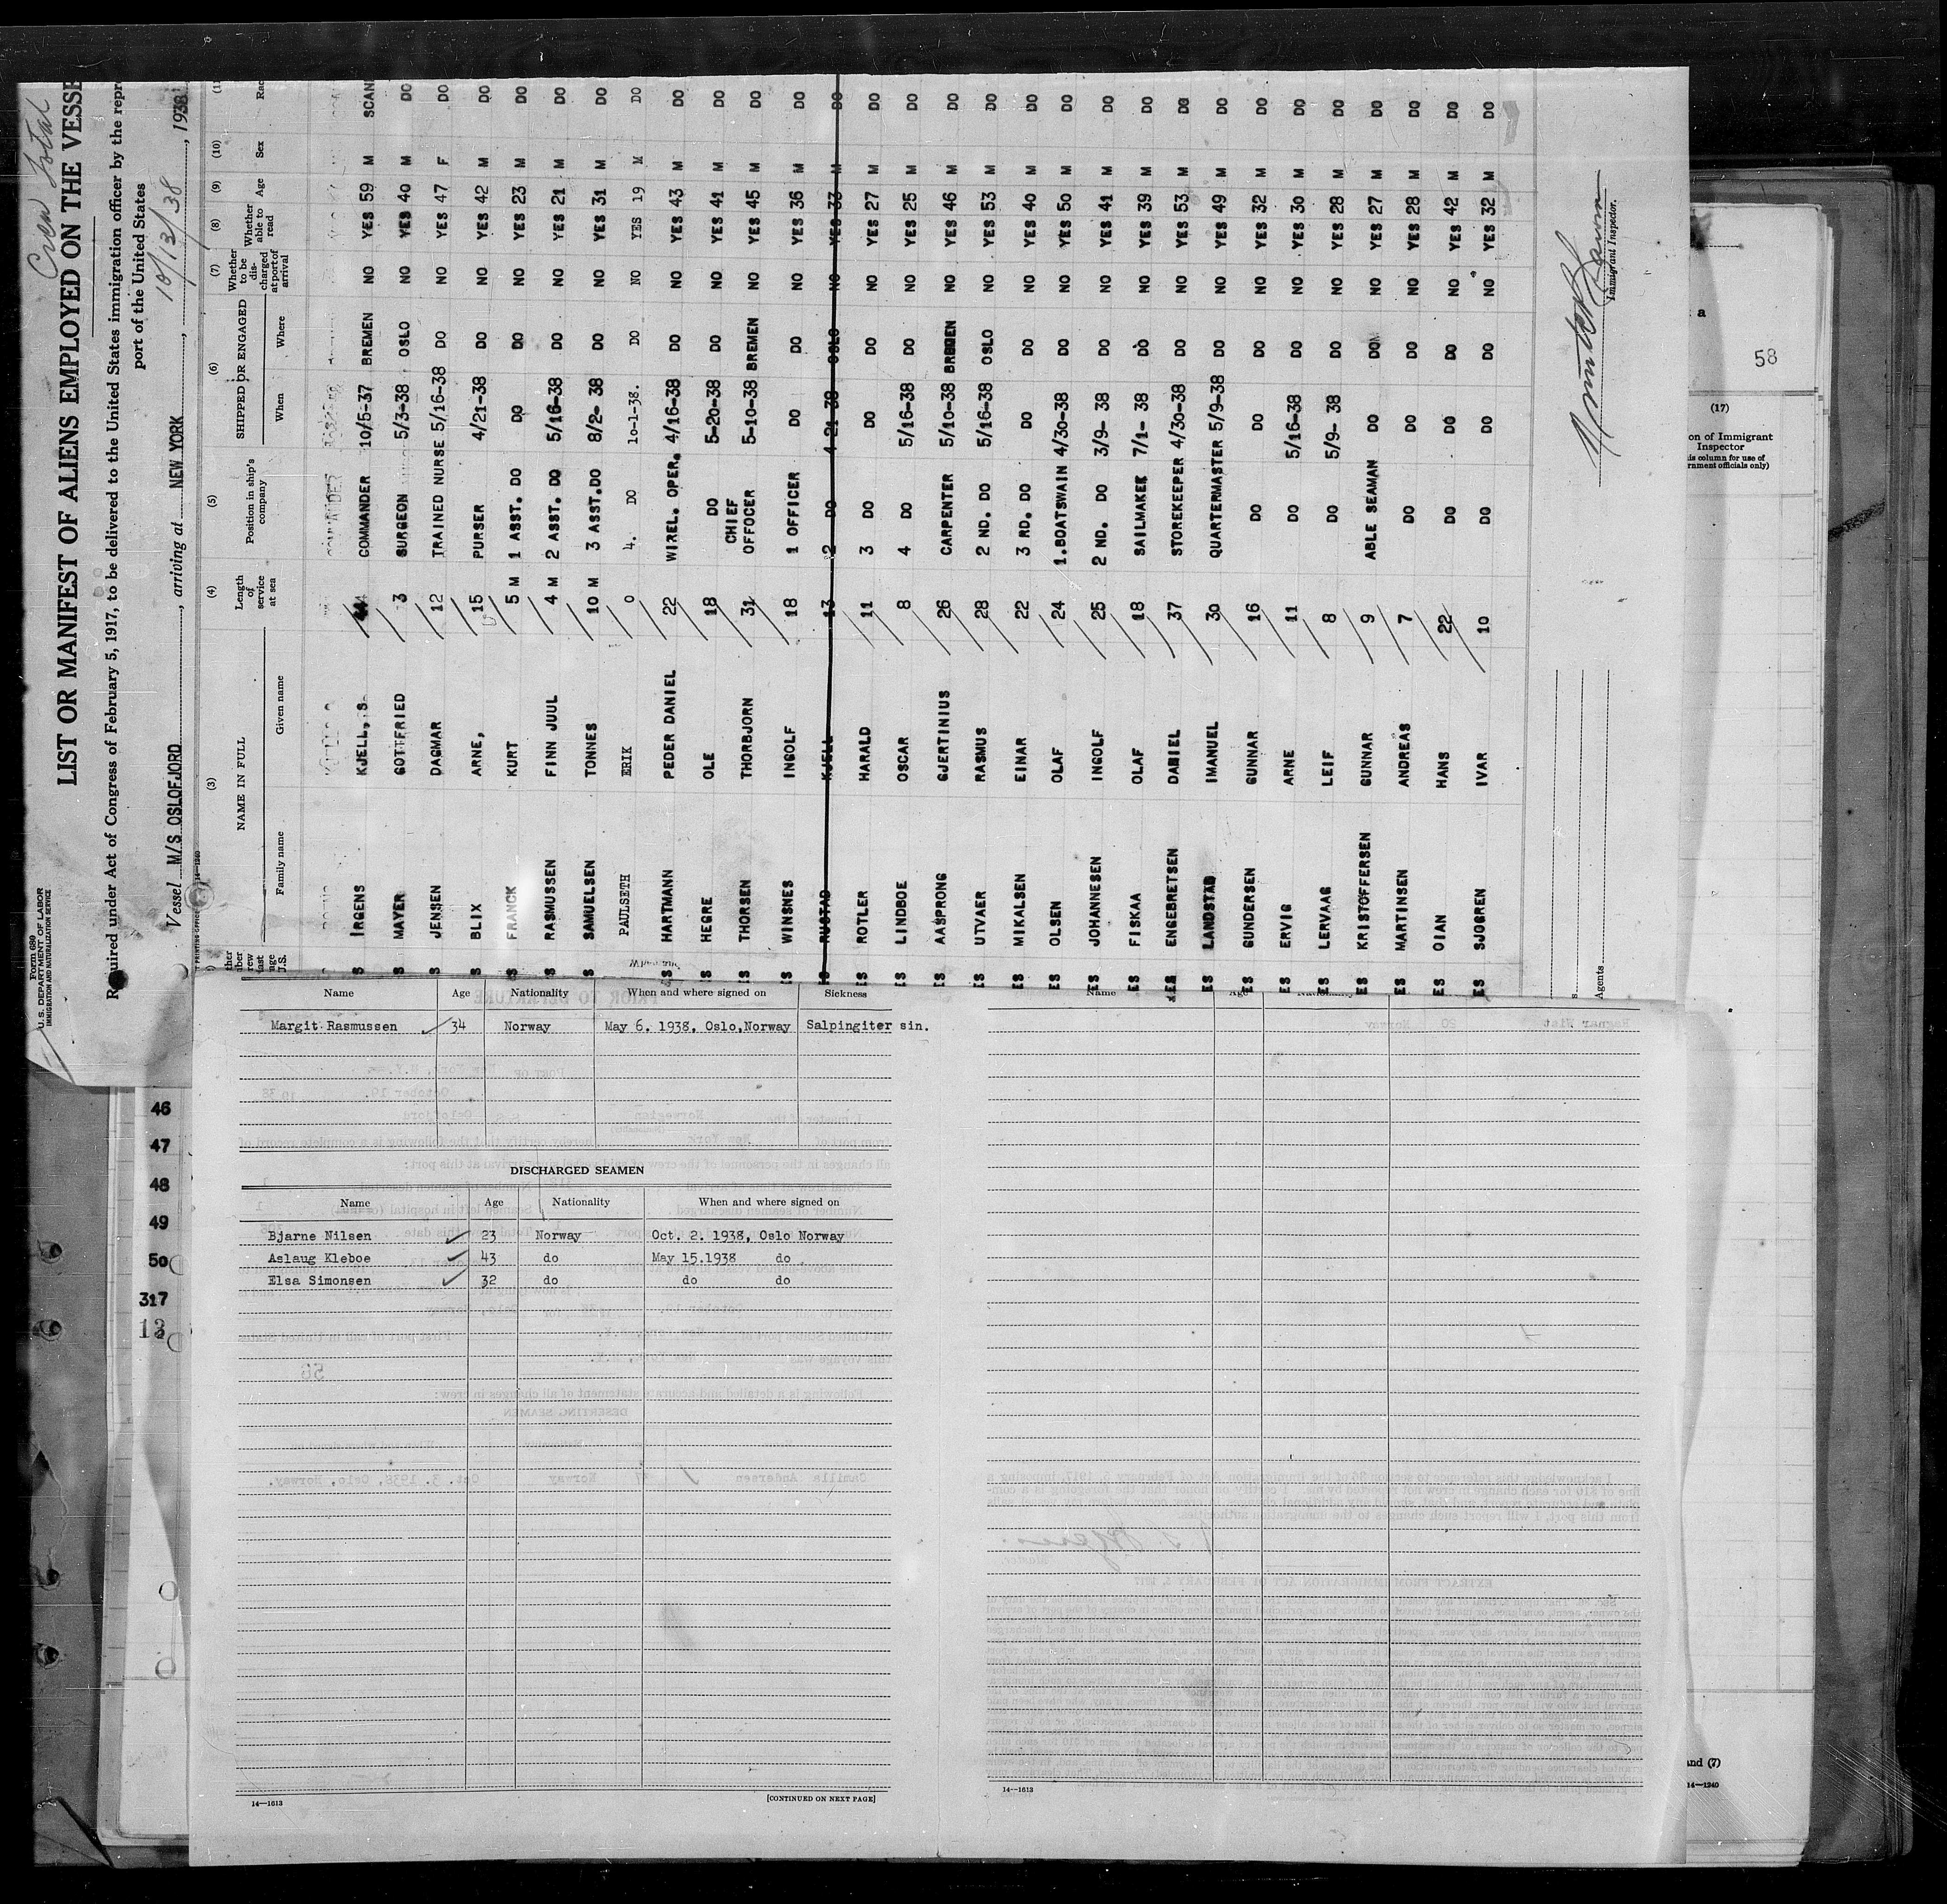 Form 689
U.S. DEPARTMENT OF LABOR
IMMIGRATION AND NATURALIZATION SERVICE
Crew Total
LIST OR MANIFEST OF ALIENS EMPLOYED ON THE VESSE
Required under Act of Congress of February 5, 1917, to be delivered to the United States immigration officer by the repr
port of the United States
10/13/38
Vessel M/S OSLOFJORD, arriving at NEW YORK, 1938
14-1240
(3) (4) (5) (6) (7) (8) (9) (10)
NAME IN FULL
Family name Given name
Length of service at sea
Position in ship's company
SHIPPED OR ENGAGED
When Where
Whether to be discharged at port of arrival
Whether able to read
Age
Sex
S IRGENS KJELL, S. COMMANDER 10/5-37 BREMEN NO YES 59 M SCAN
S MAYER GOTTFRIED 3 SURGEON 5/3-38 OSLO NO YES 40 M DO
S JENSEN DAGMAR 12 TRAINED NURSE 5/16-38 DO NO YES 47 F DO
S BLIX ARNE, 15 PURSER 4/21-38 DO NO YES 42 M DO
S FRANCK KURT 5 M 1 ASST. DO DO DO NO YES 23 M DO
S RASMUSSEN FINN JUUL 4 M 2 ASST. DO 5/16-38 DO NO YES 21 M DO
S SAMUELSEN TONNES 10 M 3 ASST.DO 8/2- 38 DO NO YES 31 M DO
PAULSETH ERIK 0 4. DO 10-1-38. DO NO YES 19 M DO
S HARTMANN PEDER DANIEL 22 WIREL. OPER. 4/16-38 DO NO YES 43 M DO
ES HEGRE OLE 18 DO 5-20-38 DO NO YES 41 M DO
ES THORSEN THORBJORN 31 CHIEF OFFOCER 5-10-38 BREMEN NO YES 45 M DO
ES WINSNES INGOLF 18 1 OFFICER DO DO NO YES 36 M DO
ES RUSTAD KJELL 13 2 DO 4-21-38 OSLO NO YES 33 M DO
ES ROTLER HARALD 11 3 DO DO DO NO YES 27 M DO
ES LINDBOE OSCAR 8 4 DO 5/16-38 DO NO YES 25 M DO
ES AASPRONG GJERTINIUS 26 CARPENTER 5/10-38 BREMEN NO YES 46 M DO
ES UTVAER RASMUS 28 2 ND. DO 5/16-38 OSLO NO YES 53 M DO
ES MIKALSEN EINAR 22 3 RD. DO DO DO NO YES 40 M DO
ES OLSEN OLAF 24 1.BOATSWAIN 4/30-38 DO NO YES 50 M DO
ES JOHANNESEN INGOLF 25 2 ND. DO 3/9- 38 DO NO YES 41 M DO
ES FISKAA OLAF 18 SAILMAKER 7/1- 38 DO NO YES 39 M DO
ES ENGEBRETSEN DANIEL 37 STOREKEEPER 4/30-38 DO NO YES 53 M DO
ES LANDSTAD IMANUEL 30 QUARTERMASTER 5/9-38 DO NO YES 49 M DO
ES GUNDERSEN GUNNAR 16 DO DO DO NO YES 32 M DO
ES ERVIG ARNE 11 DO 5/16-38 DO NO YES 30 M DO
ES LERVAAG LEIF 8 DO 5/9- 38 DO NO YES 28 M DO
ES KRISTOFFERSEN GUNNAR 9 ABLE SEAMAN DO DO NO YES 27 M DO
ES MARTINSEN ANDREAS 7 DO DO DO NO YES 28 M DO
ES OIAN HANS 22 DO DO DO NO YES 42 M DO
ES SJOGREN IVAR 10 DO DO DO NO YES 32 M DO
Agents
Immigrant Inspector.
58
(17)
on of Immigrant
Inspector
is column for use of
rnment officials only)
and (7)
14-1240
46
47
48
49
50
317
13
Name Age Nationality When and where signed on Sickness
Margit Rasmussen 34 Norway May 6. 1938, Oslo,Norway Salpingiter sin.
DISCHARGED SEAMEN
Name Age Nationality When and where signed on
Bjarne Nilsen 23 Norway Oct. 2. 1938, Oslo Norway
Aslaug Kleboe 43 do May 15.1938 do
Elsa Simonsen 32 do do do
14—1613
[CONTINUED ON NEXT PAGE]
Name Age Nationality
14—1613